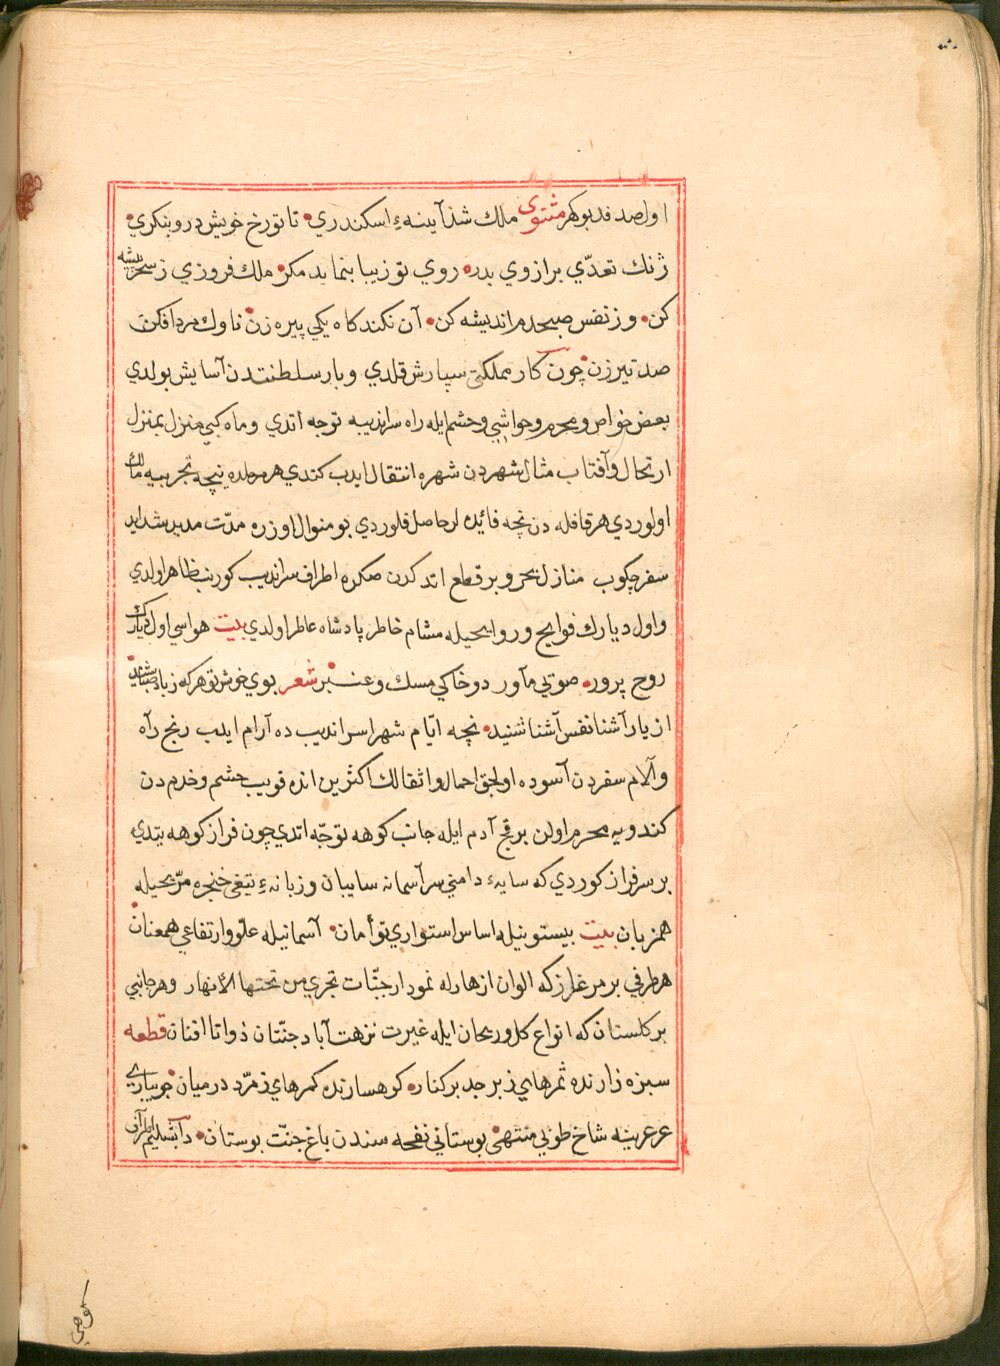 اول صدفده بو کهر مثنوی ملك شد آینهء اسکندري تا تو رخ خویش در و بنکري
ژنك تعدّي بر ازوي بدره روي تو زیبا بنماید مکر ملك فروزي ز سحر پیشه
کن وز نفس صبحدم اندیشه کن آن نکند کاه یکي پیره زن ناوك مرد افکن
صد تیرزن چون کار مملکتی سپارش قلدي و بار سلطنتدن آسایش بولدي
بعض خواص و محرم و حواشي و حشم ایله راه سراندیبه توجه اتدي و ماه کبي منزل بمنزل
ارتحال و آفتاب مثال شهردن شهره انتقال ایدب کندي هر مرحله ده نیچه تجربیه مالك
اولوردي هر قافله دن نچه فائده لر حاصل قلوردي بو منوال اوزره مدّت مدید شداید
سفر چکوب منازل بحر و بر قطع اتدکدن صکره اطراف سراندیب کورینب ظاهر اولدي
و اول دیارك فوایح و روایحیله مشام خاطر پادشاه عاطر اولدي بیت هواسي اول دیارك
روح پرور صوتي مآورد و خاکي مسك و عنبر شعر بوي خوش تو هر که ز باد صبا شنید
از یار آشنا نفس آشنا شنید نچه ایّام شهر اسراندیب ده آرام ایدب رنج راه
و آلام سفردن آسوده اولجق احمال و اثقالك اکثرین انده قویب حشم و خدم دن
کندویه محرم اولن بر قچ آدم ایله جانب کوهه توجّه اتدي چون فراز کوهه یتدي
بر سرفراز کوردي که سایهء دامني سر آسمانه سایبان و زبانهء تیغی خنجره مرّیحیله
همزبان بیت بیستونیله اساس استواري توأمان آسمانیله علوّ و ارتفاعي همعنان
هر طرفي بر مرغزار که الوان ازهارله نمودار جنّات تجري من تحتها الأنهار و هر جانبي
بر کلستان که انواع کل و ریحان ایله غیرت نزهت آباد جنّتان ذواتا افنان قطعه
سبزه زارنده ثمرهاي زبرجد بر کنار کوهسارنده کمرهاي زمرّد در میان جویباري
عرعرینه شاخ طوبي منتهی بوستاني نفحه سندن باغ جنّت بوستان دابشلیم اطرافن
کوهي